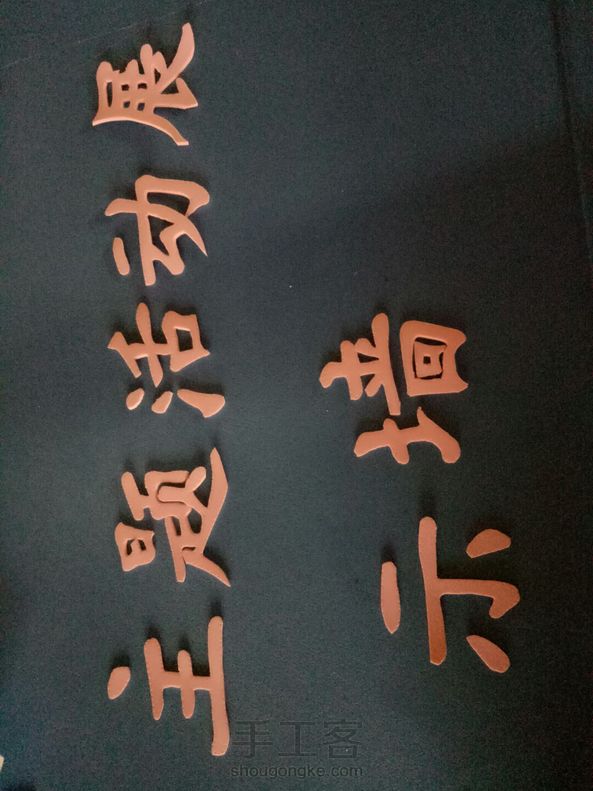 主题活动展
示墙
手工客
shougongke.com